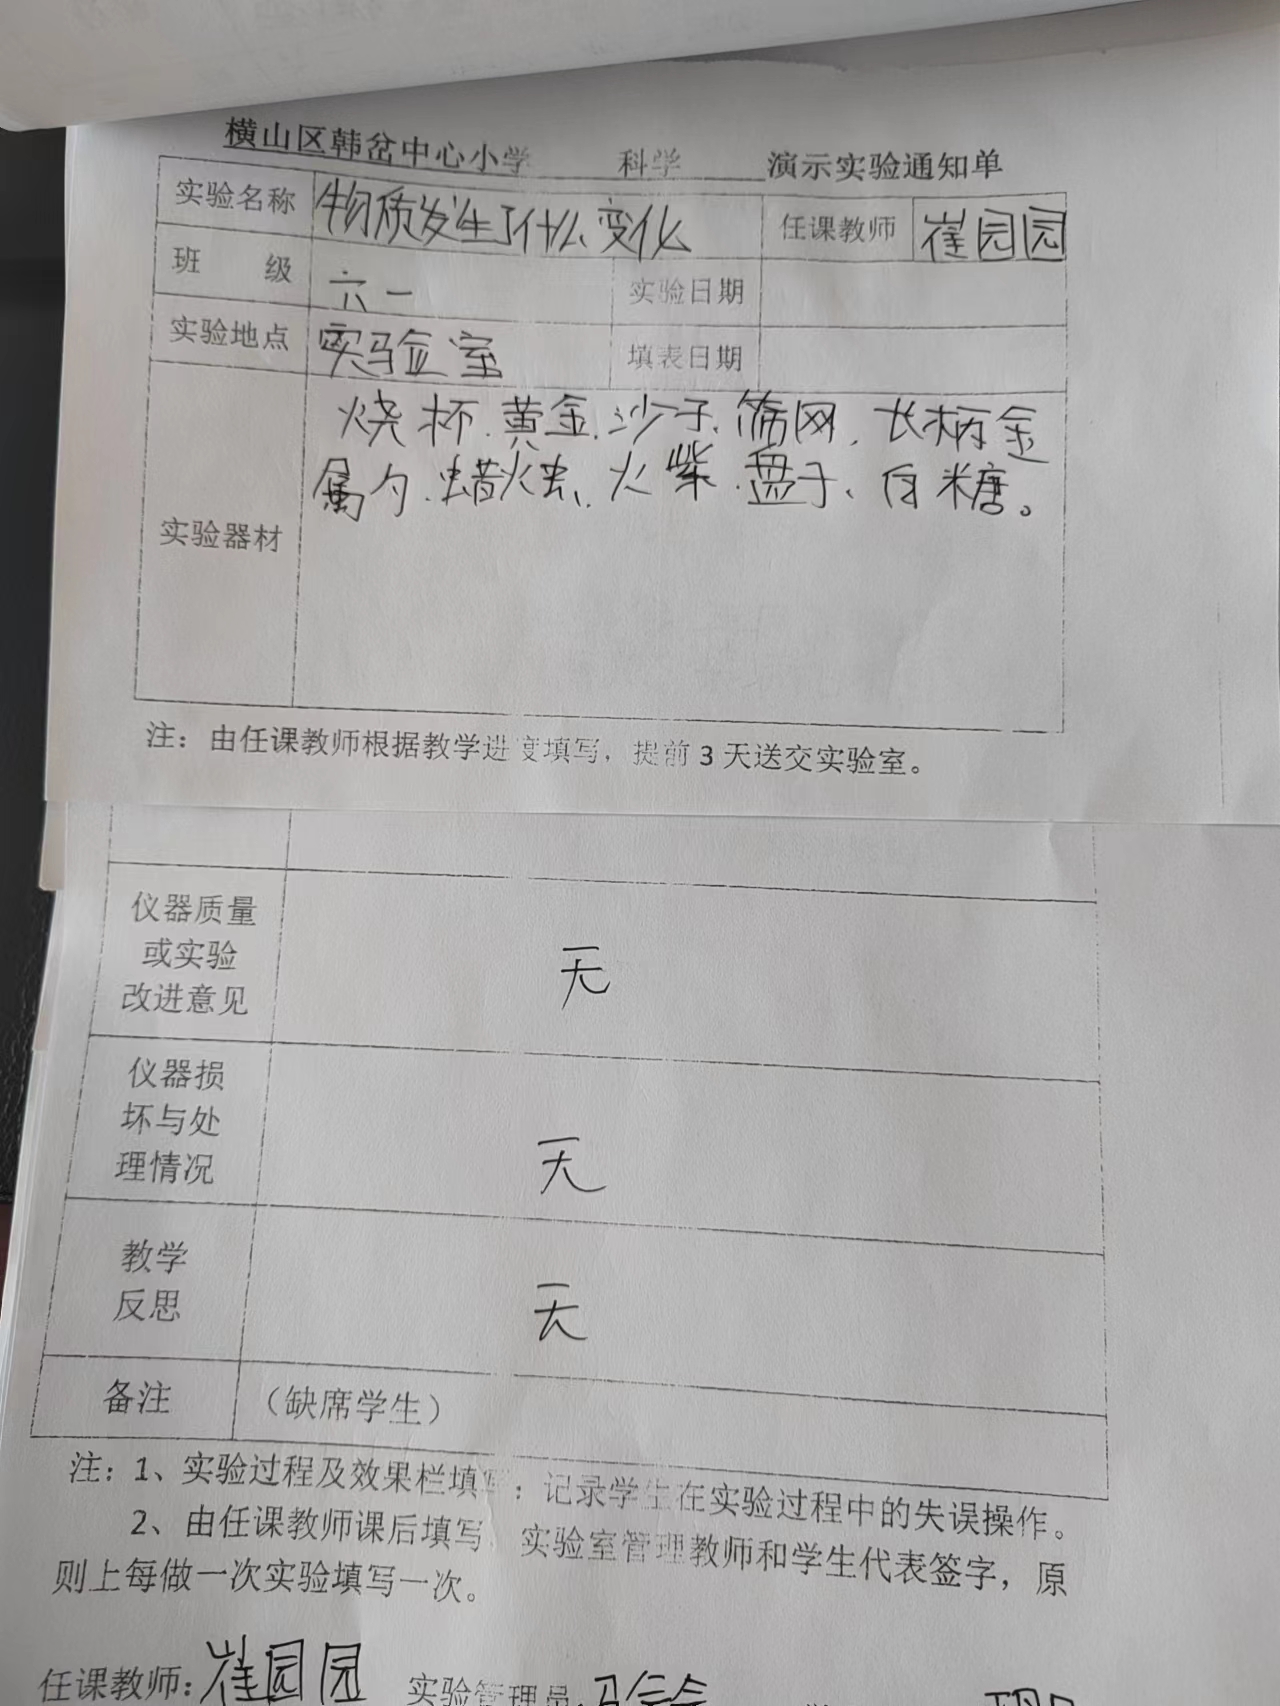 横山区韩岔中心小学 科学 演示实验通知单
实验名称 物质发生了什么变化 任课教师 崔园园
班 级 六一 实验日期
实验地点 实验室 填表日期
实验器材
烧杯、黄金、沙子、筛网、长柄金
属勺、蜡烛、火柴、盘子、白糖。
注：由任课教师根据教学进度填写，提前3天送交实验室。
仪器质量
或实验
改进意见
无
仪器损
坏与处
理情况
无
教学
反思
无
备注 （缺席学生）
注：1、实验过程及效果栏填写：记录学生在实验过程中的失误操作。
2、由任课教师课后填写，实验室管理教师和学生代表签字，原
则上每做一次实验填写一次。
任课教师：崔园园 实验管理员：